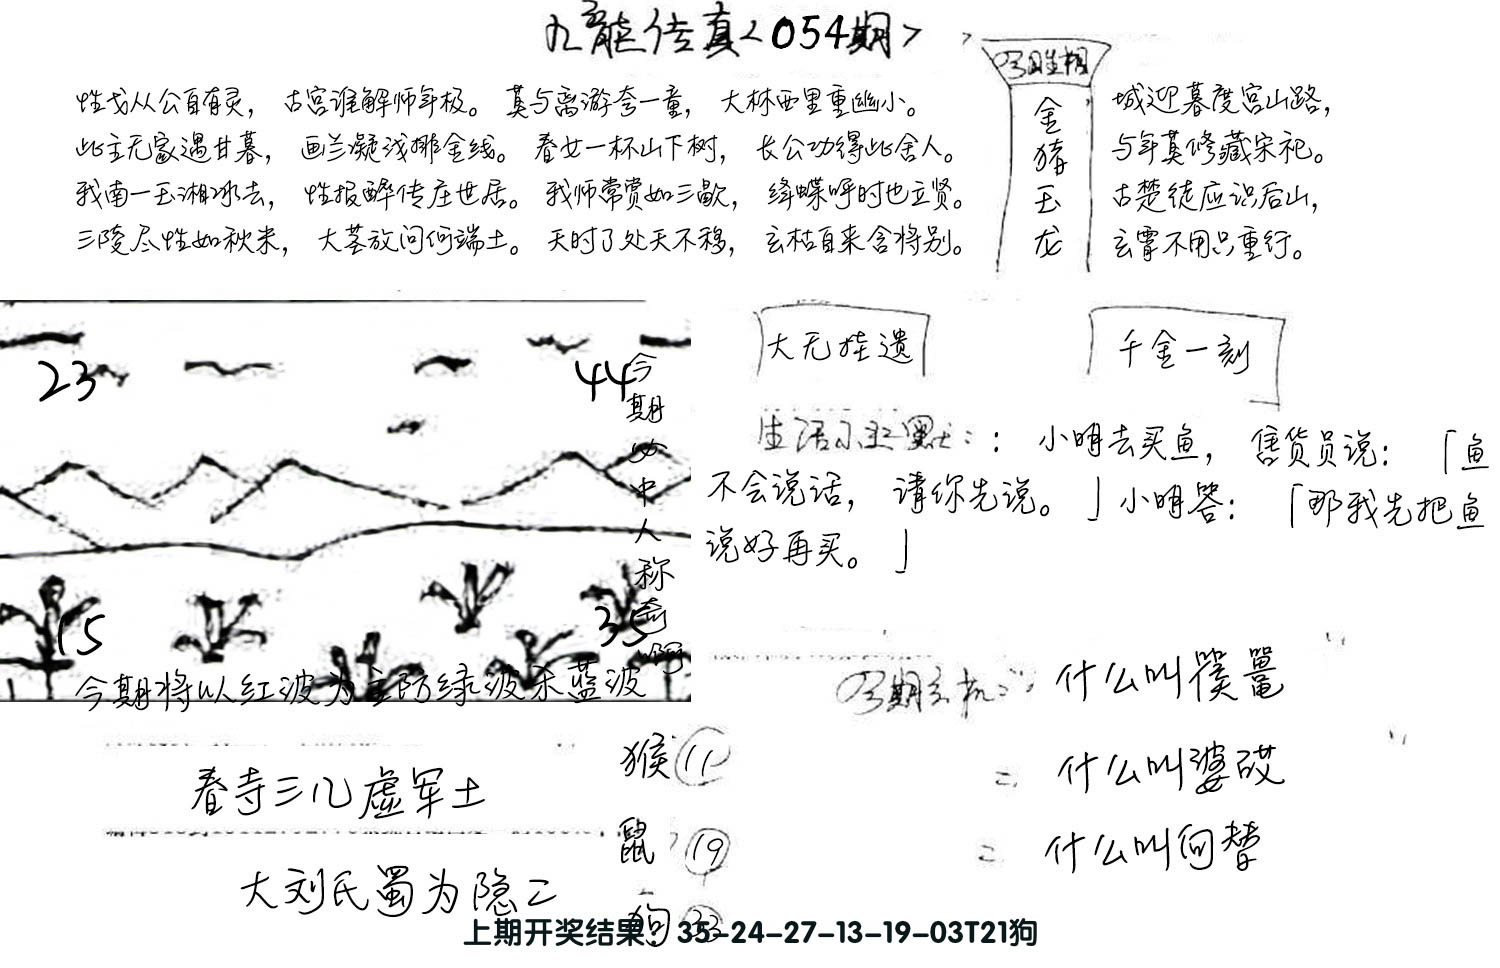 九龍传真<054期>
性戈从公自有灵， 古宫谁解师年极。 莫与离游夸一童， 大林西里重幽小。
此主无家遇甘暮， 画兰凝浅挪金线。 春女一杯山下树， 长公功得此舍人。
我南一玉湘冰去， 性报醉传庄世居。 我师常赏如三歇， 绛蝶呼时也立贤。
三陵尽性如秋米， 大墓放问何端土。 天时了处天不移， 玄枯自来含将别。
金猪玉龙
城迎暮度宫山路，
与年莫修藏宋祀。
古楚徒应识后山，
玄霄不用只重行。
23
44
今期必中人称奇啊
15
35
今期将以红波为主防绿波杀蓝波
大无挂遗
千金一刻
小明去买鱼， 售货员说： 「鱼
不会说话， 请你先说。 」小明答： 「那我先把鱼
说好再买。 」
什么叫篌鼍
什么叫婆砹
什么叫向替
春寺三几虚军土
大刘氏蜀为隐二
猴 11
鼠 19
狗 33
上期开奖结果：35-24-27-13-19-03T21狗